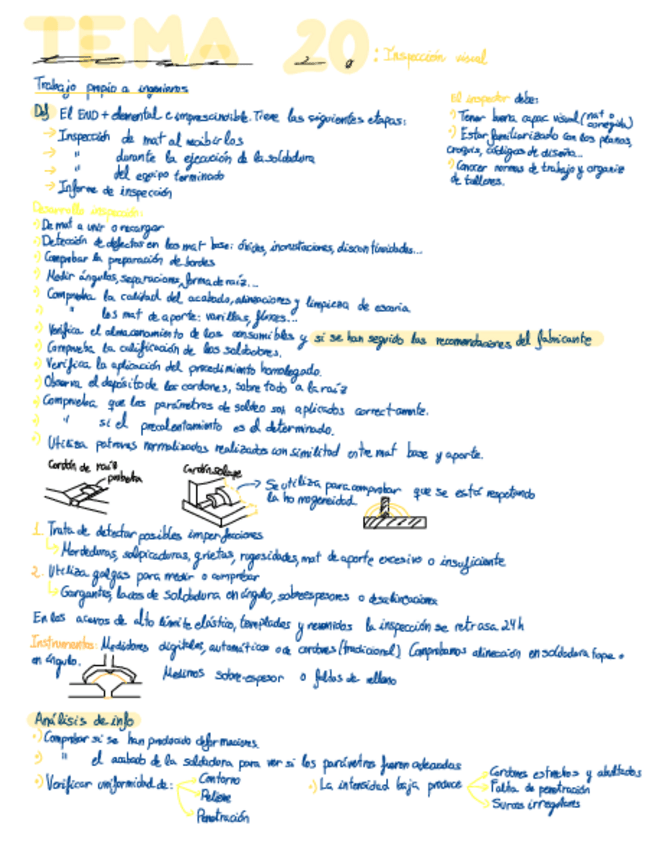 TEMA 20: Inspección visual
Trabajo propio a ingenieros
Df El END + elemental e imprescindible. Tiene las siguientes etapas:
→ Inspección de mat al recibirlos
→ " durante la ejecución de la soldadura
→ " del equipo terminado
→ Informe de inspección
El inspector debe:
Tener buena capac visual (nat o corregida)
Estar familiarizado con los planos,
croquis, códigos de diseño...
Conocer normas de trabajo y organiz
de talleres.
Desarrollo inspección:
De mat a unir o recargar
Detección de defectos en los mat base: óxidos, incrustaciones, discontinuidades...
Comprobar la preparación de bordes
Medir ángulos, separaciones, forma de raíz...
Comprueba la calidad del acabado, alineaciones y limpieza de escoria
" los mat de aporte: varillas, fluxes...
Verifica el almacenamiento de los consumibles y si se han seguido las recomendaciones del fabricante
Comprueba la calificación de los soldadores.
Verifica la aplicación del procedimiento homologado.
Observa el depósito de los cordones, sobre todo a la raíz
Comprueba que los parámetros de soldeo son aplicados correctamente.
" si el precalentamiento es el determinado.
Utiliza patrones normalizados realizados con similitud entre mat base y aporte.
Cordón de raíz
probeta
Cordón solape
→ Se utiliza para comprobar que se está respetando
la homogeneidad
1. Trata de detectar posibles imperfecciones
Mordeduras, salpicaduras, grietas, rugosidades, mat de aporte excesivo o insuficiente
2. Utiliza galgas para medir o comprobar
Gargantas, lados de soldadura en ángulo, sobreespesores o desalineaciones
En los aceros de alto límite elástico, templados y revenidos la inspección se retrasa 24h
Instrumentos: Medidores digitales, automáticos o de cordones (tradicional) Comprobamos alineación en soldadura tope o
en ángulo.
Medimos sobre-espesor o faltas de relleno
Análisis de info
Comprobar si se han producido deformaciones.
" el acabado de la soldadura para ver si los parámetros fueron adecuados
Verificar uniformidad de:
Contorno
Relieve
Penetración
La intensidad baja produce
Cordones estrechos y abultados
Falta de penetración
Surcos irregulares